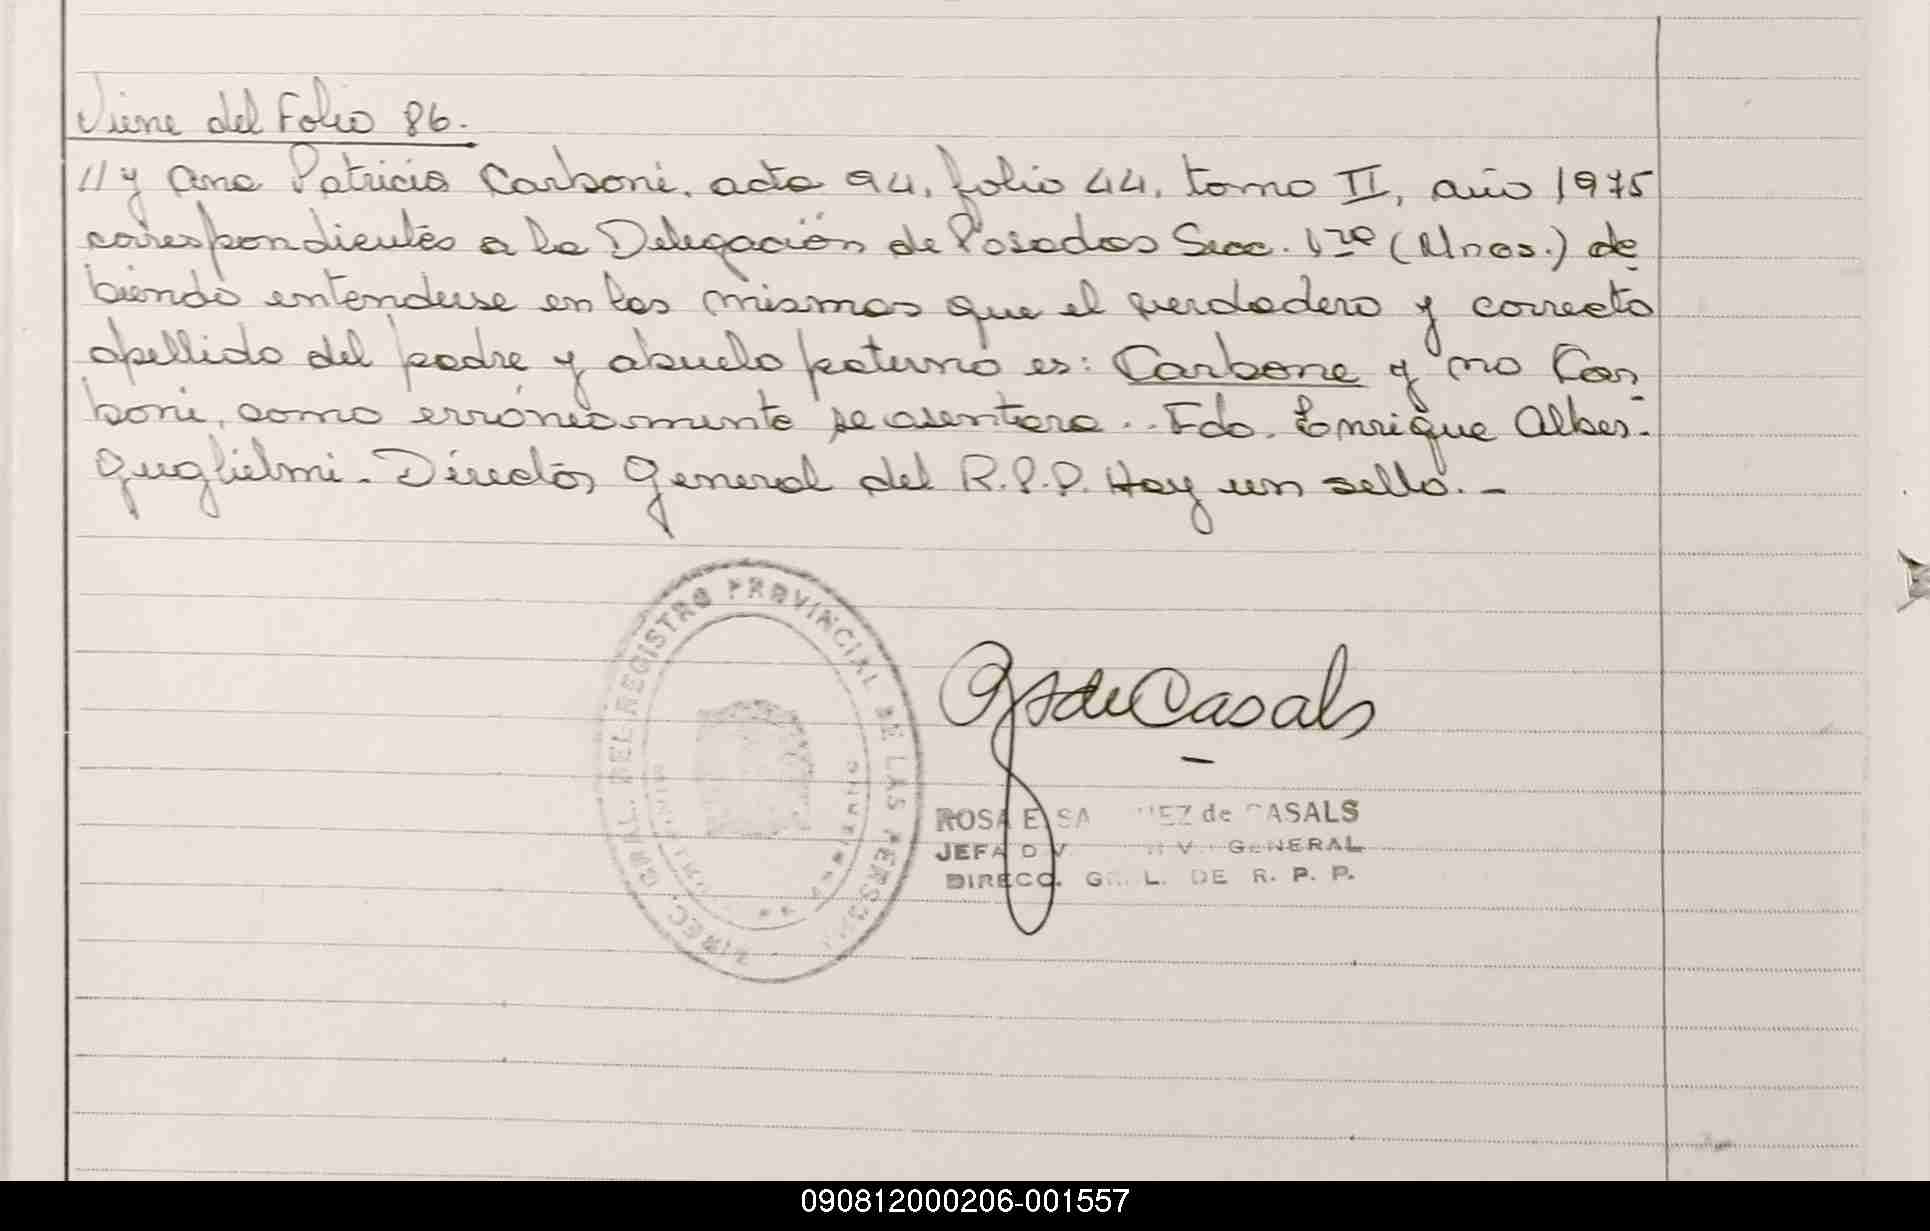 Viene del Folio 86.
// y Ana Patricia Carboni, acta 94, folio 44, tomo II, año 1975
correspondientes a la Delegación de Posadas Secc. 1ra (Mnes.) de
biendo entenderse en las mismas que el verdadero y correcto
apellido del padre y abuelo paterno es: Carbone y no Car
boni, como erróneamente se asentara.. Fdo. Enrique Alber
Guglielmi. Director General del R.P.P. Hay un sello.-
DIREC. GRAL. DEL REGISTRO PROVINCIAL DE LAS PERSONAS
de Casals
ROSA E. SA EZ de CASALS
JEFA GENERAL
DIRECC. G L. DE R. P. P.
090812000206-001557